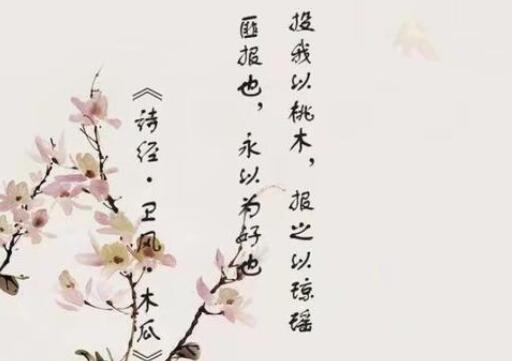 投我以桃木，报之以琼瑶
匪报也，永以为好也
《诗经·卫风·木瓜》